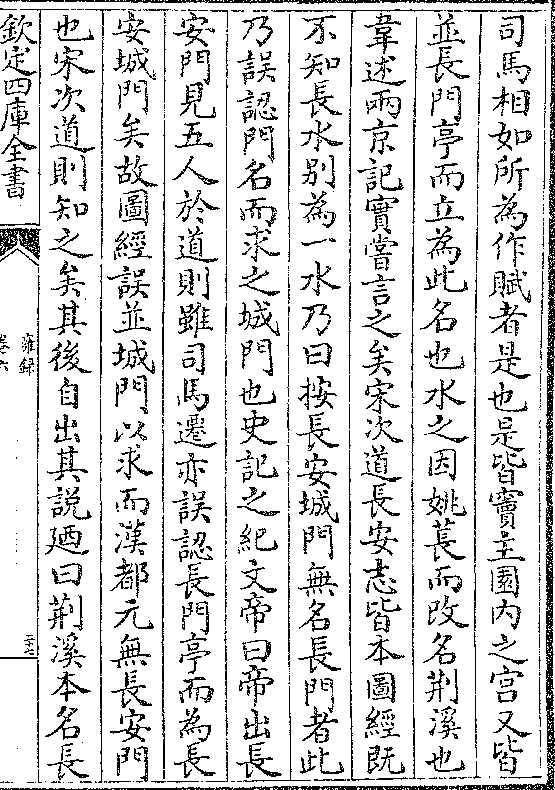 司馬相如所為作賦者是也是皆竇主園内之宫又皆
並長門亭而立為此名也水之因姚萇而改名荆溪也
韋述兩京記實嘗言之矣宋次道長安志皆本圖經既
不知長水别為一水乃曰按長安城門無名長門者此
乃誤認門名而求之城門也史記之紀文帝曰帝出長
安門見五人於道則雖司馬遷亦誤認長門亭而為長
安城門矣故圖經誤並城門以求而漢都元無長安門
也宋次道則知之矣其後自出其說廼曰荆溪本名長
欽定四庫全書
雍録
卷六